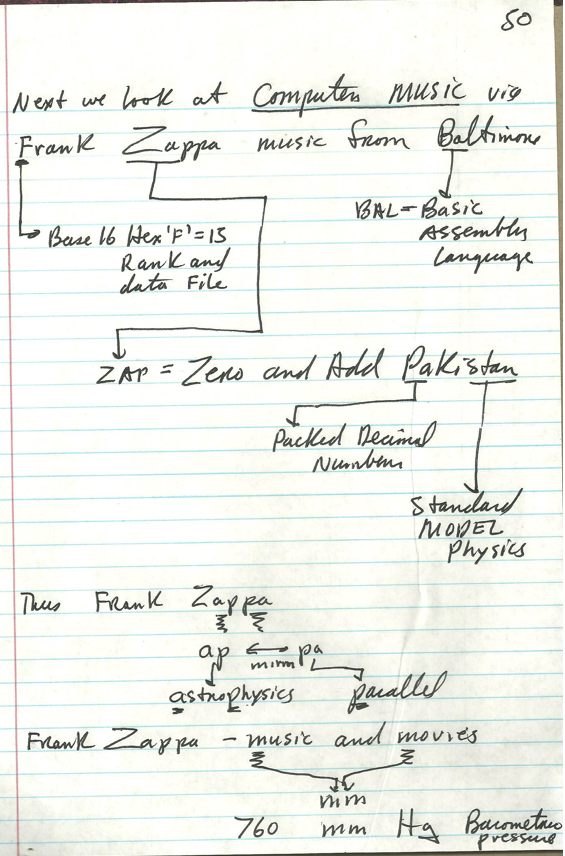 50
Next we look at Computer music via
Frank Zappa music from Baltimore
BAL = Basic
Assembly
Language
Base 16 Hex 'F' = 15
Rank and
data File
ZAP = Zero and Add Pakistan
Packed Decimal
Numbers
Standard
MODEL
Physics
Thus Frank Zappa
ap ↔ pa
mirm
astrophysics parallel
Frank Zappa - music and movies
mm
760 mm Hg Barometric
pressure